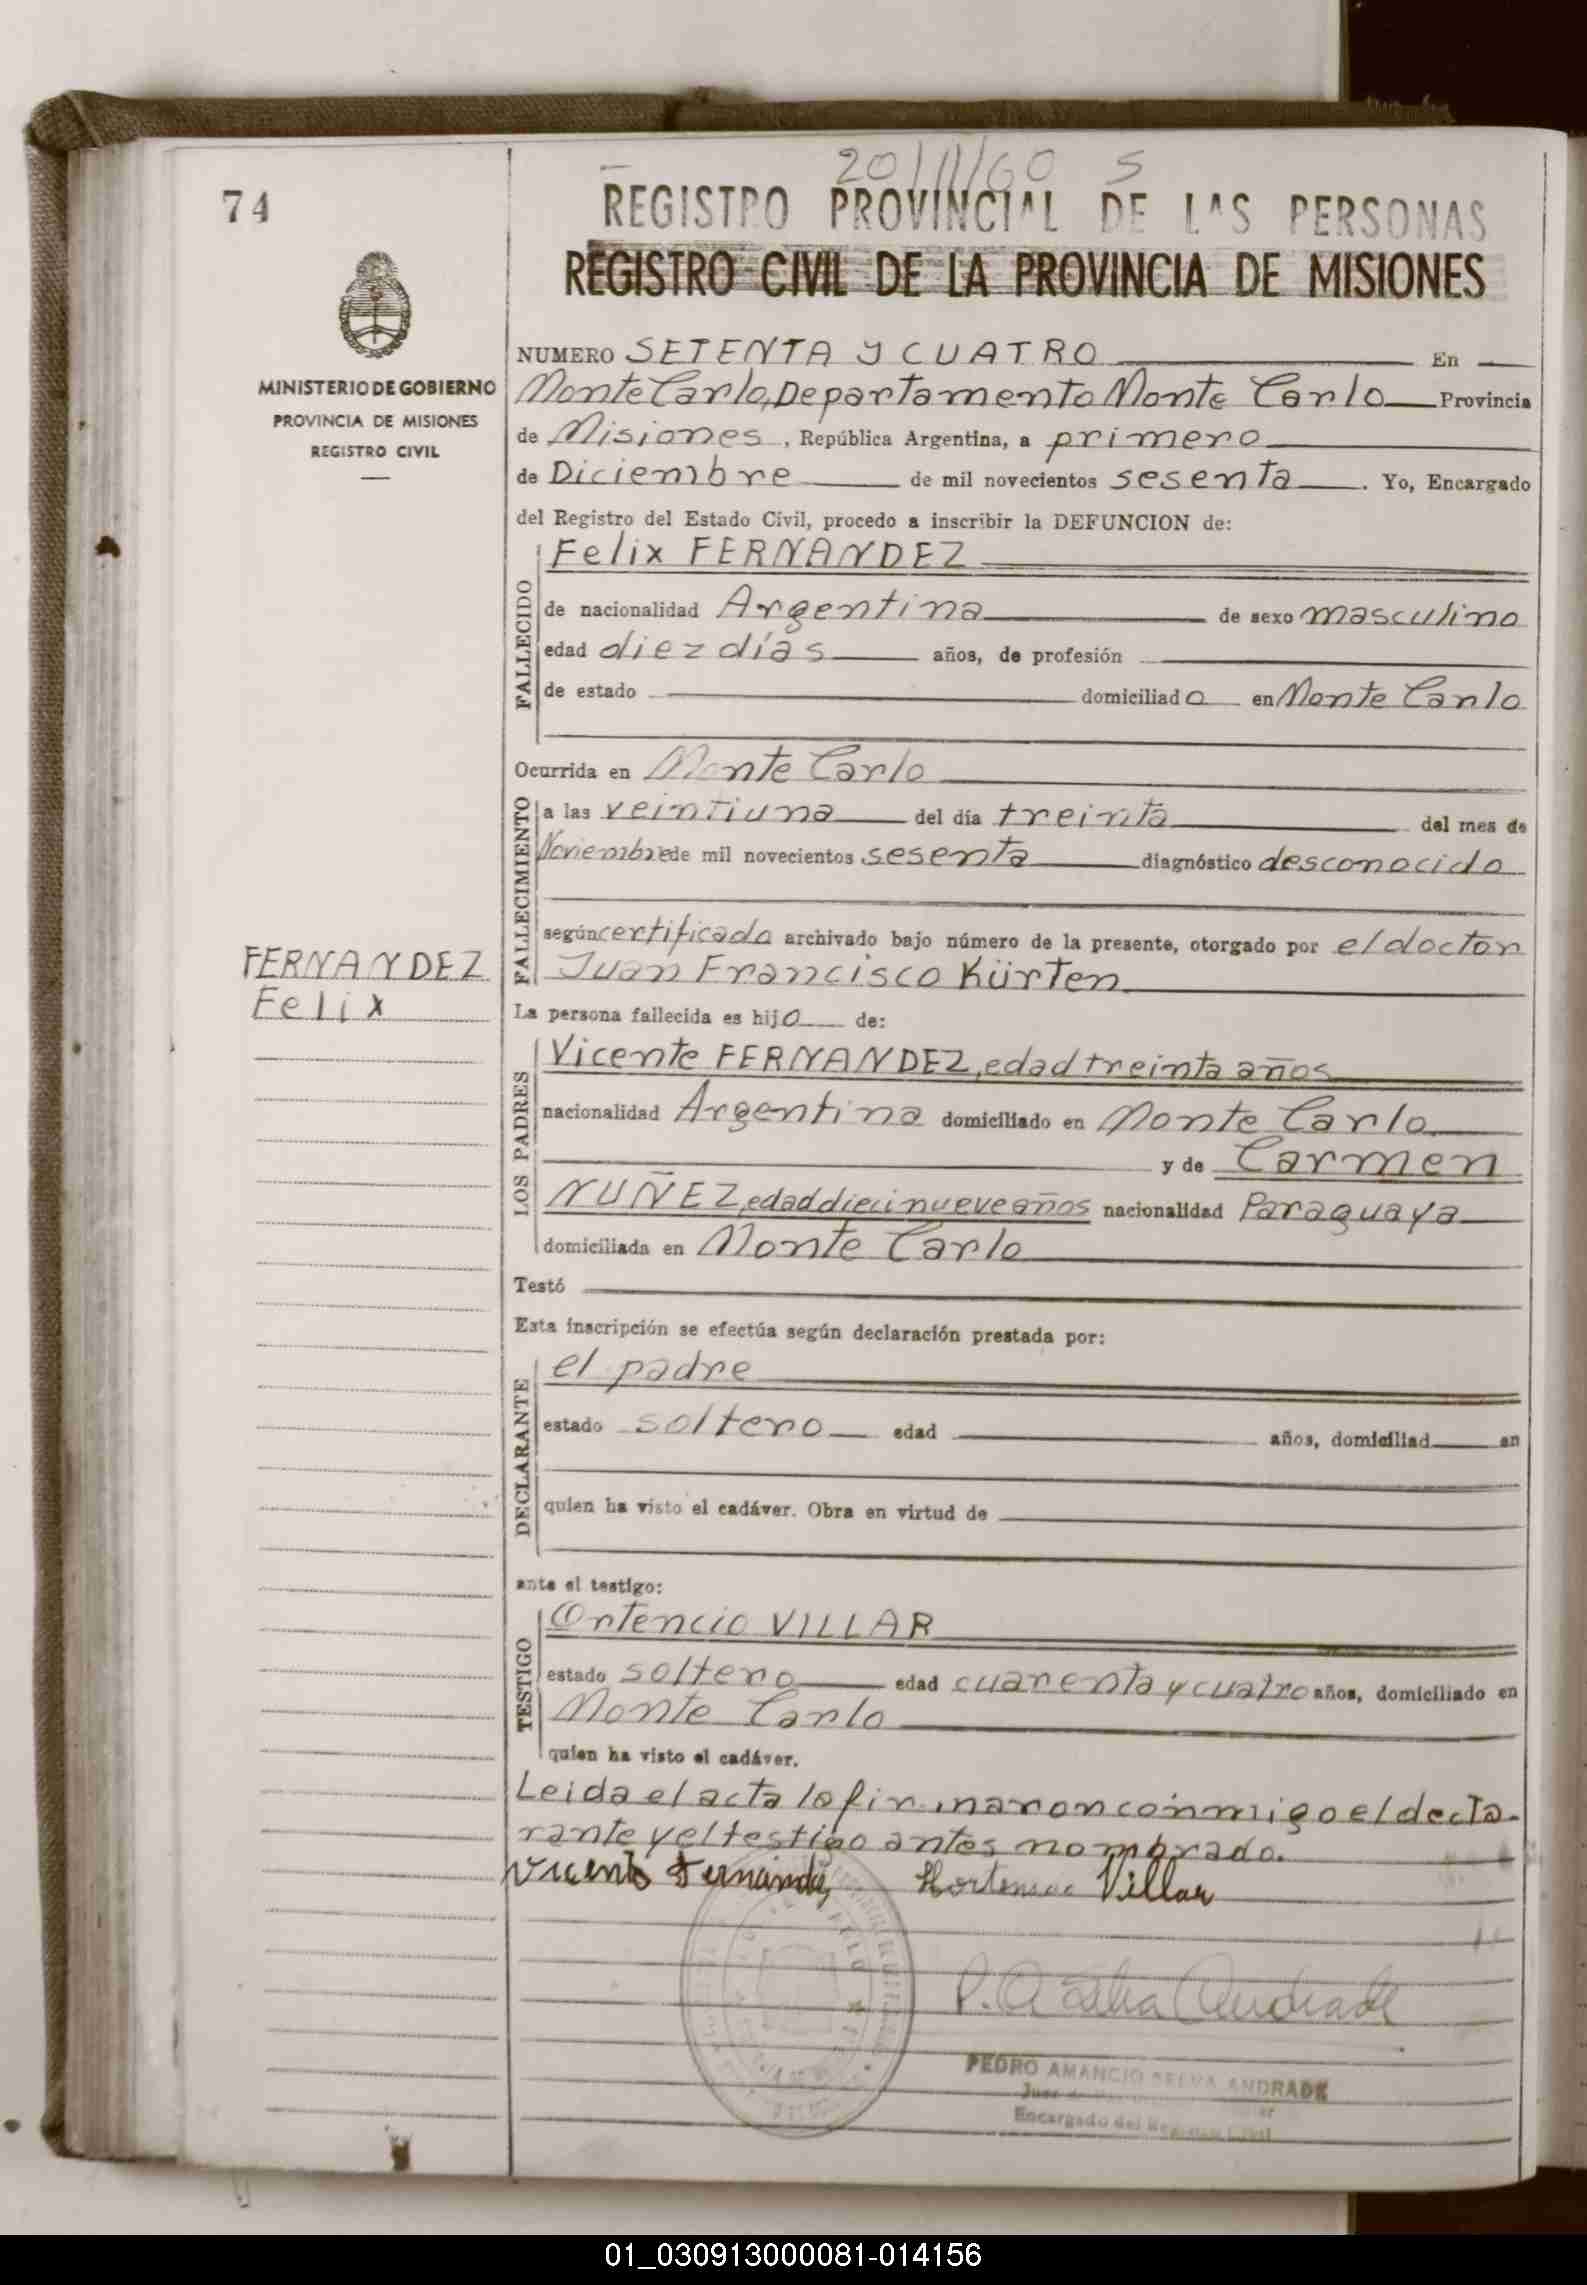 20/11/60 S
74
REGISTRO PROVINCIAL DE LAS PERSONAS
REGISTRO CIVIL DE LA PROVINCIA DE MISIONES
MINISTERIO DE GOBIERNO
PROVINCIA DE MISIONES
REGISTRO CIVIL
NUMERO SETENTA Y CUATRO En
Monte Carlo, Departamento Monte Carlo Provincia
de Misiones, República Argentina, a primero
de Diciembre de mil novecientos sesenta. Yo, Encargado
del Registro del Estado Civil, procedo a inscribir la DEFUNCION de:
FALLECIDO
Felix FERNANDEZ
de nacionalidad Argentina de sexo masculino
edad diez días años, de profesión
de estado domiciliado en Monte Carlo
Ocurrida en Monte Carlo
FALLECIMIENTO
a las veintiuna del día treinta del mes de
Noviembre de mil novecientos sesenta diagnóstico desconocido
según certificado archivado bajo número de la presente, otorgado por el doctor
Juan Francisco Kürten
FERNANDEZ
Felix
La persona fallecida es hijo de:
LOS PADRES
Vicente FERNANDEZ, edad treinta años
nacionalidad Argentina domiciliado en Monte Carlo
y de Carmen
NUÑEZ, edad diecinueve años nacionalidad Paraguaya
domiciliada en Monte Carlo
Testó
Esta inscripción se efectúa según declaración prestada por:
DECLARANTE
el padre
estado soltero edad años, domiciliad en
quien ha visto el cadáver. Obra en virtud de
ante el testigo:
TESTIGO
Ortencio VILLAR
estado soltero edad cuarenta y cuatro años, domiciliado en
Monte Carlo
quien ha visto el cadáver.
Leida el acta la firmaron conmigo el decla-
rante y el testigo antes nombrado.
Vicente Fernández Hortencio Villar
P. A. Selva Andrade
PEDRO AMANCIO SELVA ANDRADE
Juez de
Encargado del Registro Civil
01_030913000081-014156